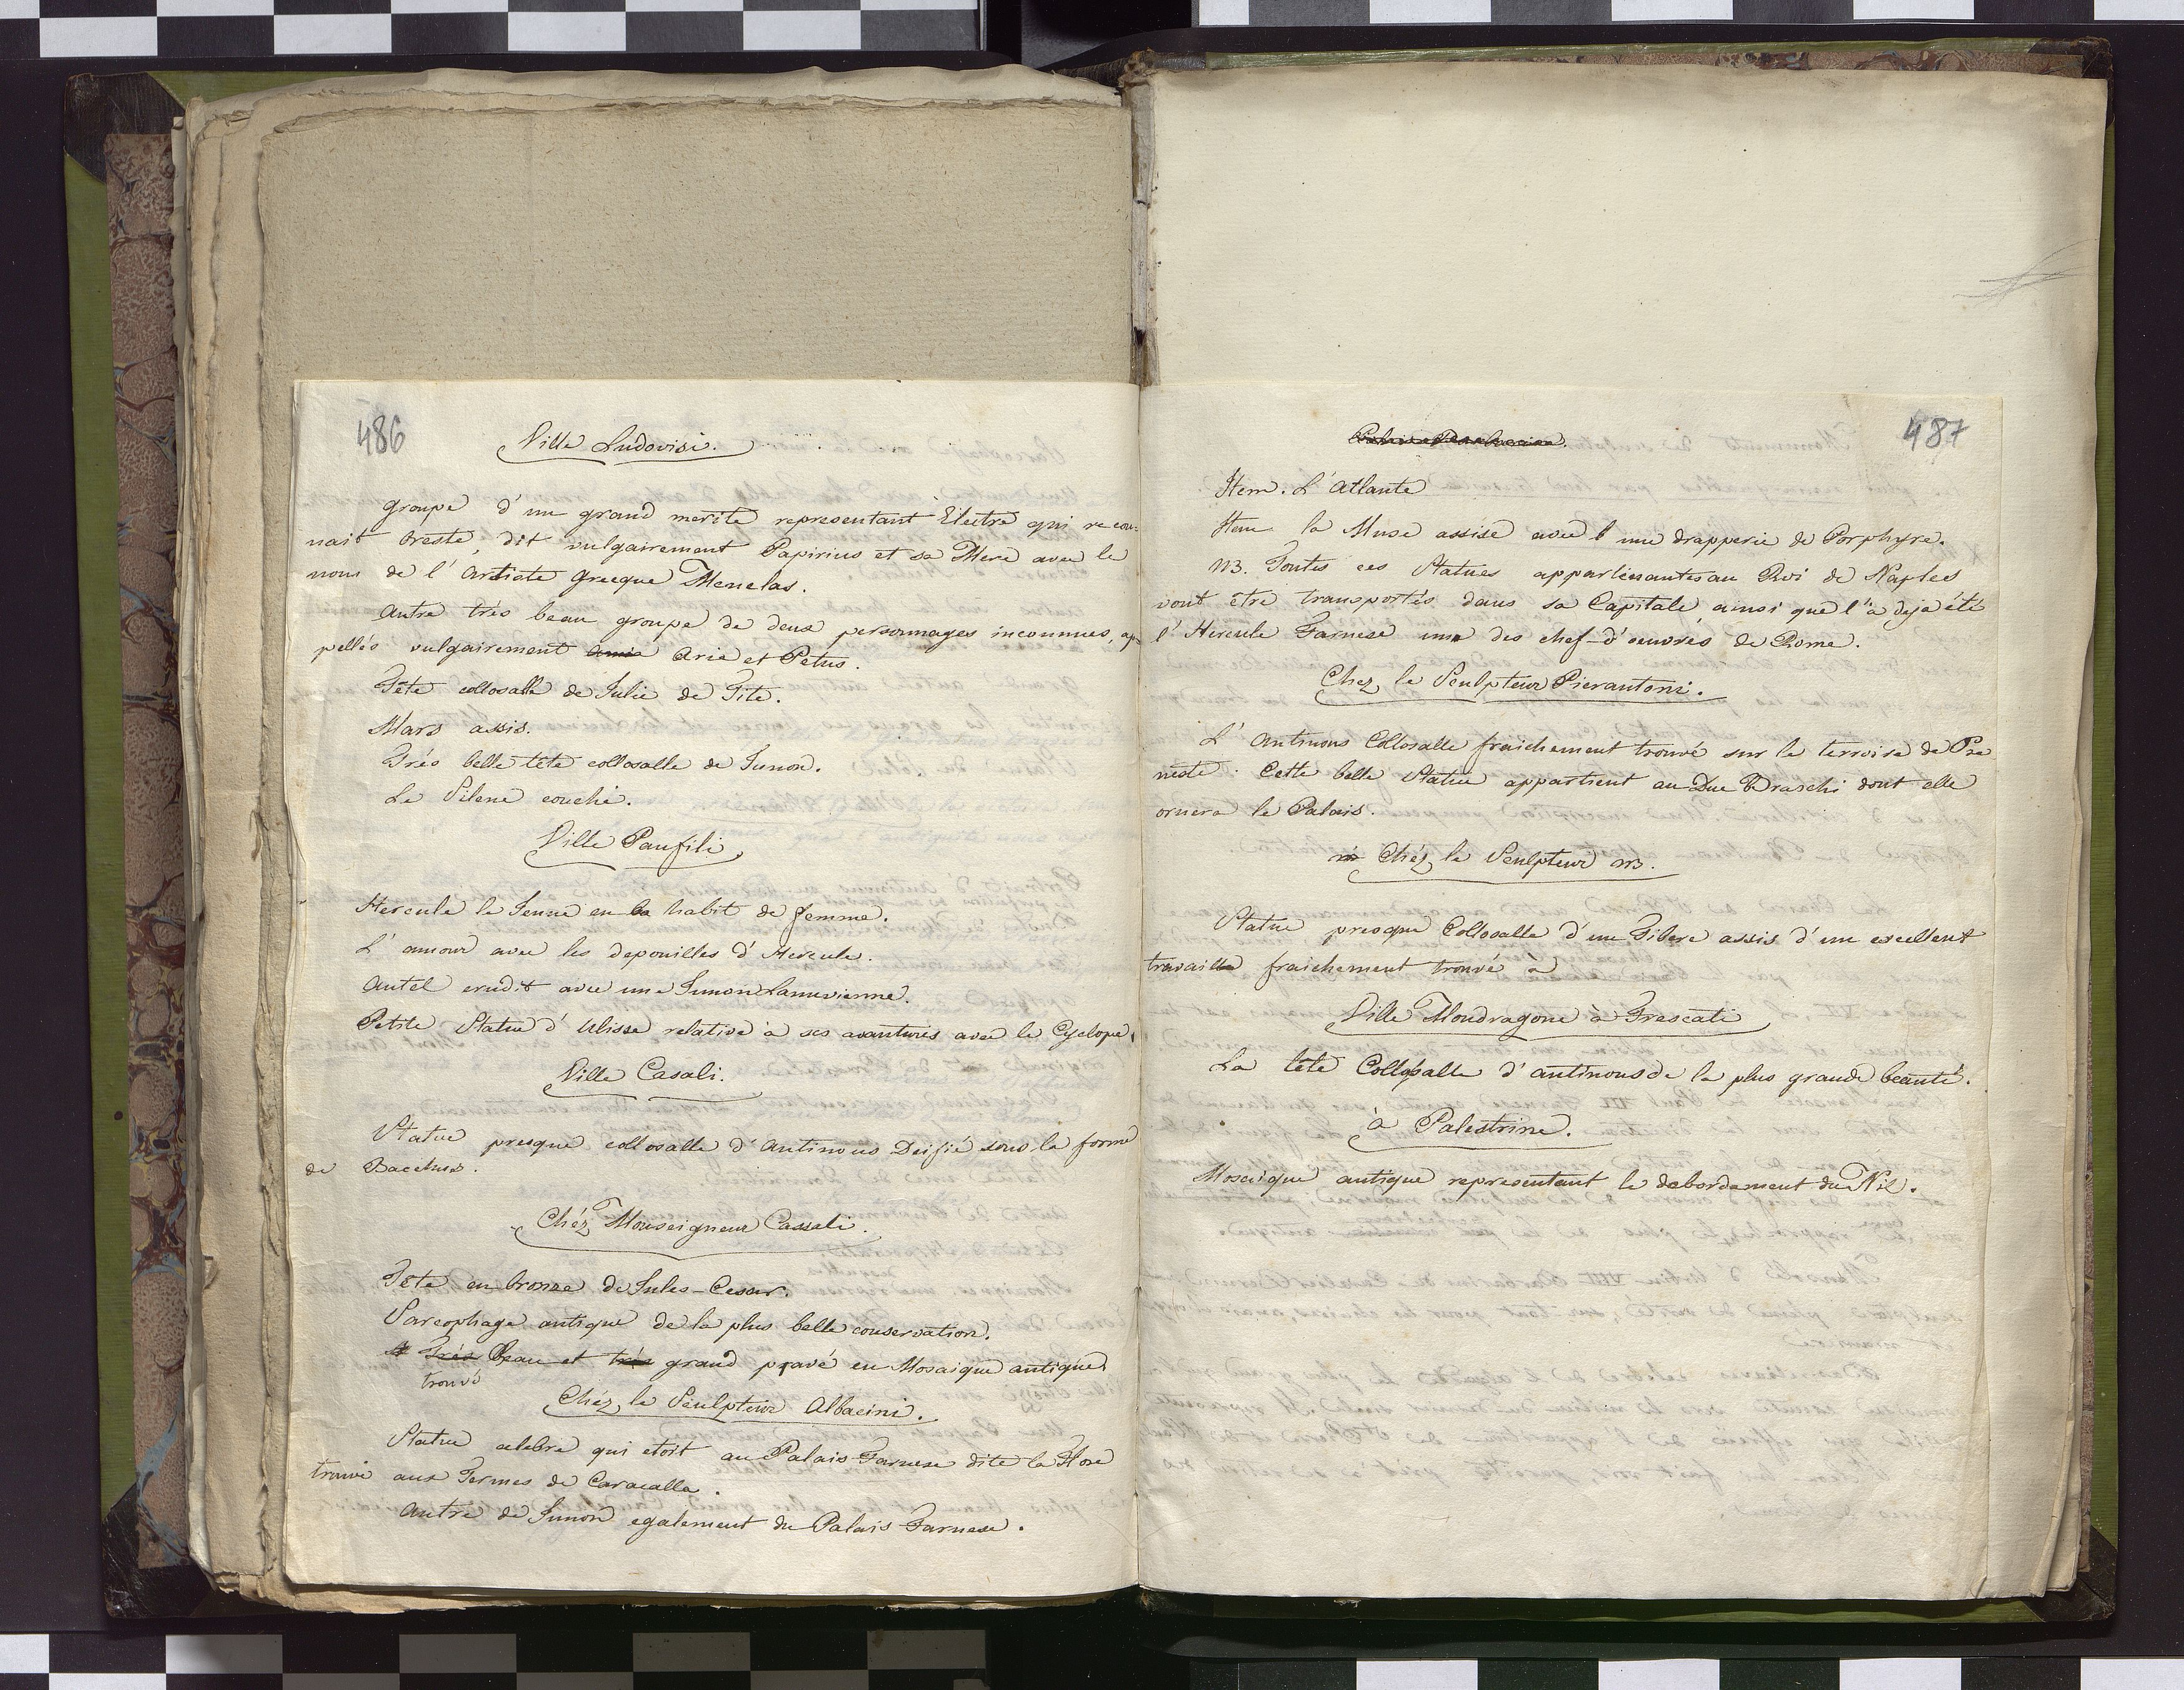 486
Ville Ludovisi.
groupe d'un grand merite representant Electre qui recon-
nait Oreste, dit vulgairement Papirius et sa Mere avec le
nom de l'Artiste grecque Menelas.
Autre très beau groupe de deux personnages inconnues, ap-
pellés vulgairement Arria Arie et Petus.
Tête collosalle de Julie de Tite.
Mars assis.
Très belle tête collosalle de Junon.
Le Silene couché.
Ville Panfili
Hercule le Jeune en habit de femme.
L'amour avec les depouilles d'Hercule.
Autel erudit avec une Junon Lanuvienne.
Petite Statue d'Ulisse relative à ses avantures avec le Cyclope.
Ville Casali.
Statue presque collosalle d'Antinous Deifié sous la forme
de Bacchus.
Chéz Monseigneur Cassali.
Tête en bronze de Jules-Cesar.
Sarcophage antique de la plus belle conservation.
Très Beau et très grand pavé en Mosaique antique
trouvé
Chéz le Sculpteur Albacini.
Statue celebre qui etoit au Palais Farnese dite la Flore
trouvé aux Termes de Caracalla.
Autre de Junon egalement du Palais Farnese.
487
Item. L'Atlante
Item la Muse assise avec une drapperie de Porphyre.
NB. Toutes ces Statues appartenantes au Roi de Naples
vont être transportés dans sa Capitale ainsi que l'a deja été
l'Hercule Farnese un des chef-d'oeuvres de Rome.
Chez le Sculpteur Pierantoni.
L'Antinous Collosalle fraichement trouvé sur le terroire de Pre
neste. Cette belle Statue appartient au Duc Braschi dont elle
ornera le Palais.
Chéz le Sculpteur NB.
Statue presque Collosalle d'un Tibere assis d'un excellent
travaille fraichement trouvé à
Ville Mondragone à Frescati
La tête Collosalle d'Antinous de la plus grande beauté.
à Palestrine.
Mosaique antique representant le debordement du Nil.